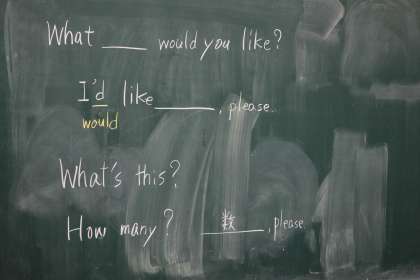 What ____ would you like?
I'd like ______, please.
would
What's this?
How many? __数__, please.